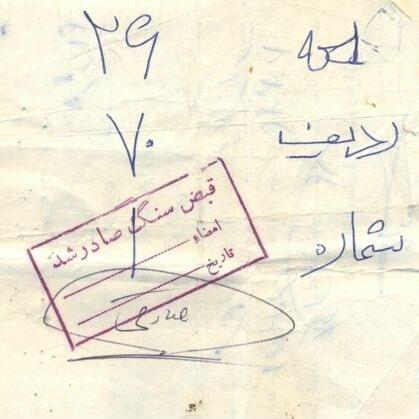 ۲۹
ردیف ۷۰
شماره ۱
قبض سنگ صادر شد
امضاء
تاریخ